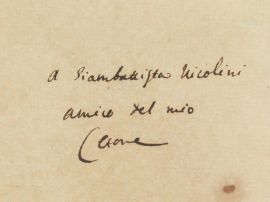 A Giambattista Nicolini
amico del mio